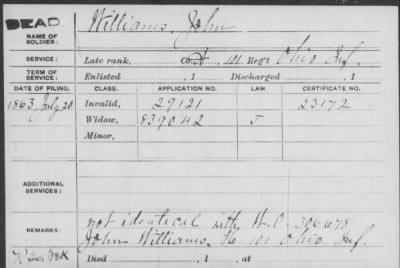 DEAD.
NAME OF SOLDIER: Williams, John
SERVICE: Late rank, Co. A, 101 Reg't Ohio Inf.
TERM OF SERVICE: Enlisted , 1 Discharged , 1
DATE OF FILING. CLASS. APPLICATION NO. LAW. CERTIFICATE NO.
1863 July 20 Invalid, 29121 23172
Widow, 839042 J
Minor,
ADDITIONAL SERVICES:
REMARKS: not identical with W.O. 306678
John Williams 101 Ohio Inf.
Died , 1 , at